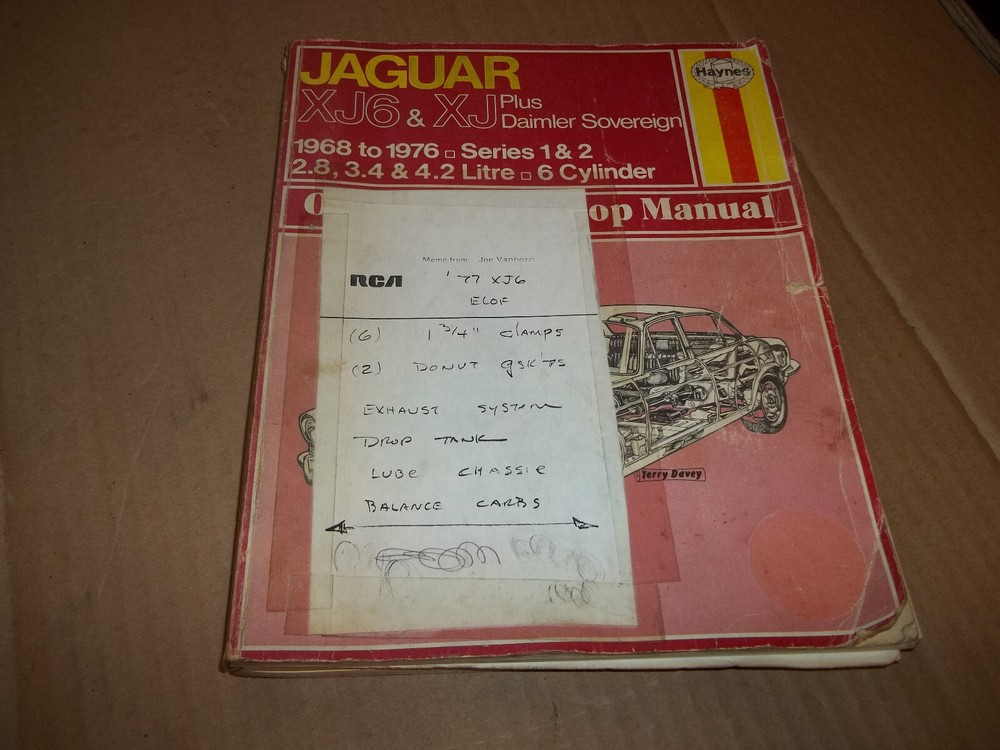 JAGUAR
XJ6 & XJ Plus
Daimler Sovereign
Haynes
1968 to 1976 □ Series 1 & 2
2.8, 3.4 & 4.2 Litre □ 6 Cylinder
O op Manual
Memo from: Joe
RCA '77 XJ6
(6) 1 3/4" clamps
(2) DONUT gsk'ts
EXHAUST SYSTEM
DROP TANK
LUBE CHASSIE
BALANCE CARBS
Terry Davey